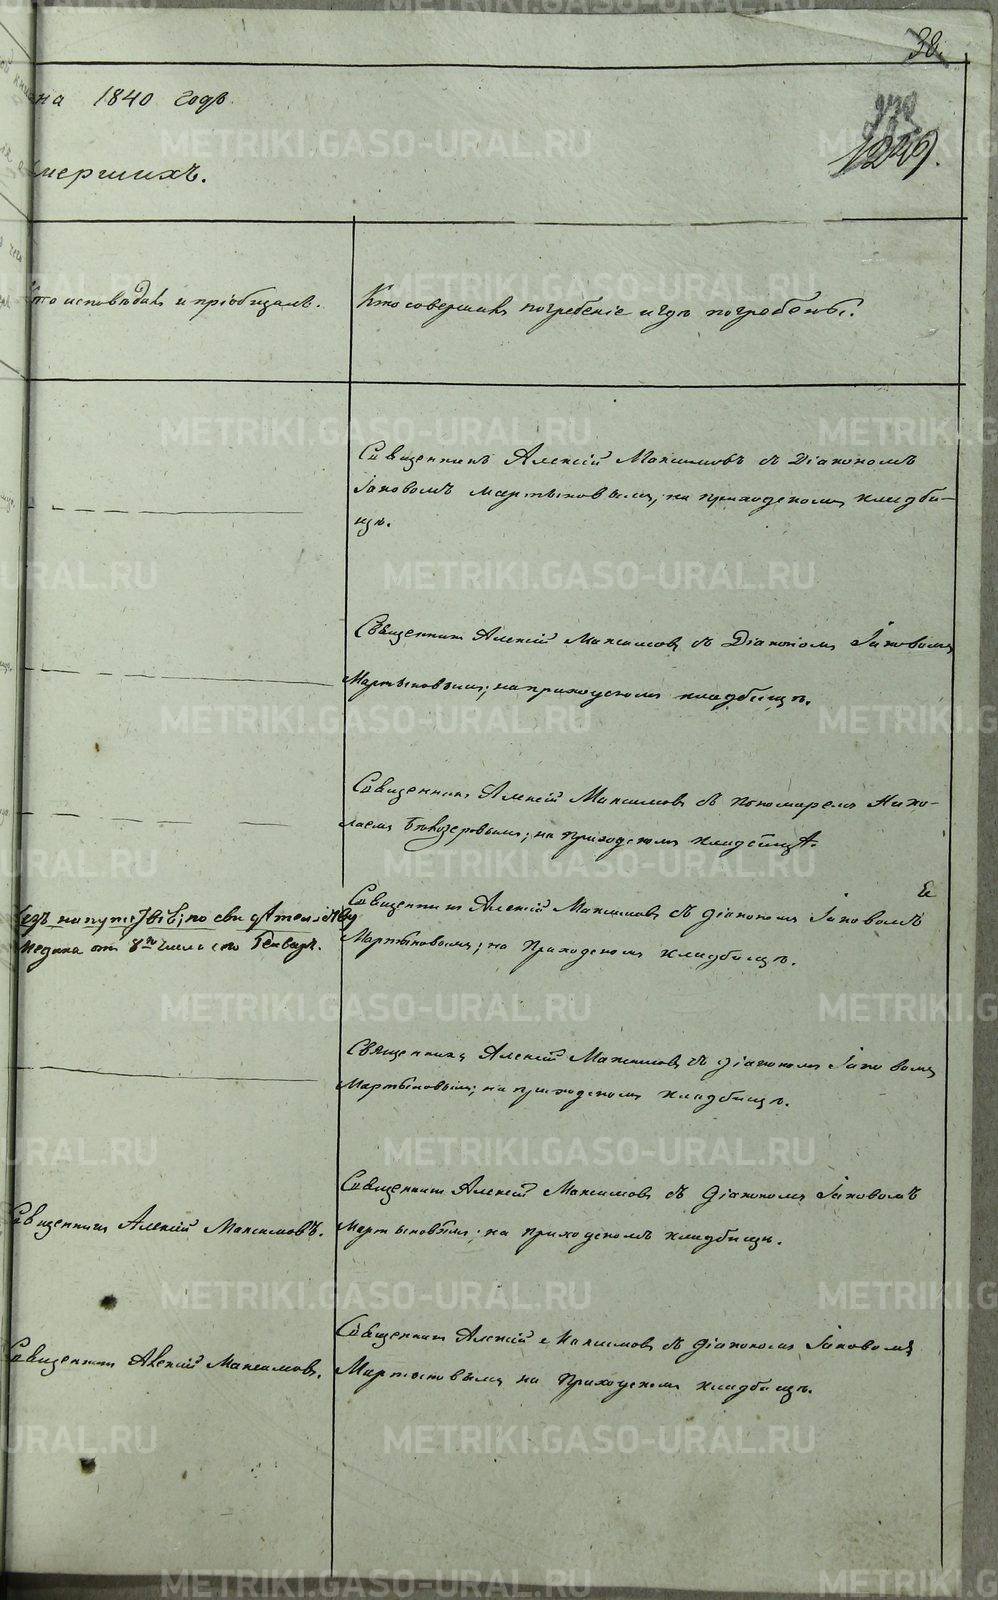 38.
на 1840 годъ.
1249.
умершихъ.
Кто исповѣдалъ и пріобщалъ.
Кто совершалъ погребеніе и гдѣ погребены.
Священникъ Алексій Максимовъ съ Діакономъ
Іаковомъ Мартыновымъ, на приходскомъ кладби-
щѣ.
Священникъ Алексій Максимовъ съ Діакономъ Іаковомъ
Мартыновымъ; на приходскомъ кладбищѣ.
Священникъ Алексій Максимовъ съ пономаремъ Нико-
лаемъ; на приходскомъ кладбищѣ.
Безъ напутствія; по свидѣтельству
медика отъ 8го числа сего Генваря.
Священникъ Алексій Максимовъ съ діакономъ Іаковомъ
Мартыновымъ; на Приходскомъ кладбищѣ.
Священникъ Алексій Максимовъ съ діакономъ Іаковомъ
Мартыновымъ; на приходскомъ кладбищѣ.
Священникъ Алексій Максимовъ.
Священникъ Алексій Максимовъ съ діакономъ Іаковомъ
Мартыновымъ; на приходскомъ кладбищѣ.
Священникъ Алексій Максимовъ.
Священникъ Алексій Максимовъ съ діакономъ Іаковомъ
Мартыновымъ на Приходскомъ кладбищѣ.
METRIKI.GASO-URAL.RU